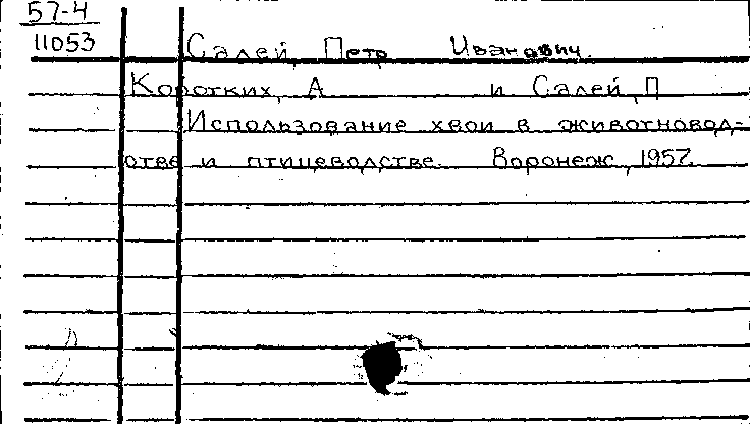 57-4
11053
Салей, Петр Иванович.
Коротких, А и Салей, П
Использование хвои в животновод-
стве и птицеводстве. Воронеж, 1957.